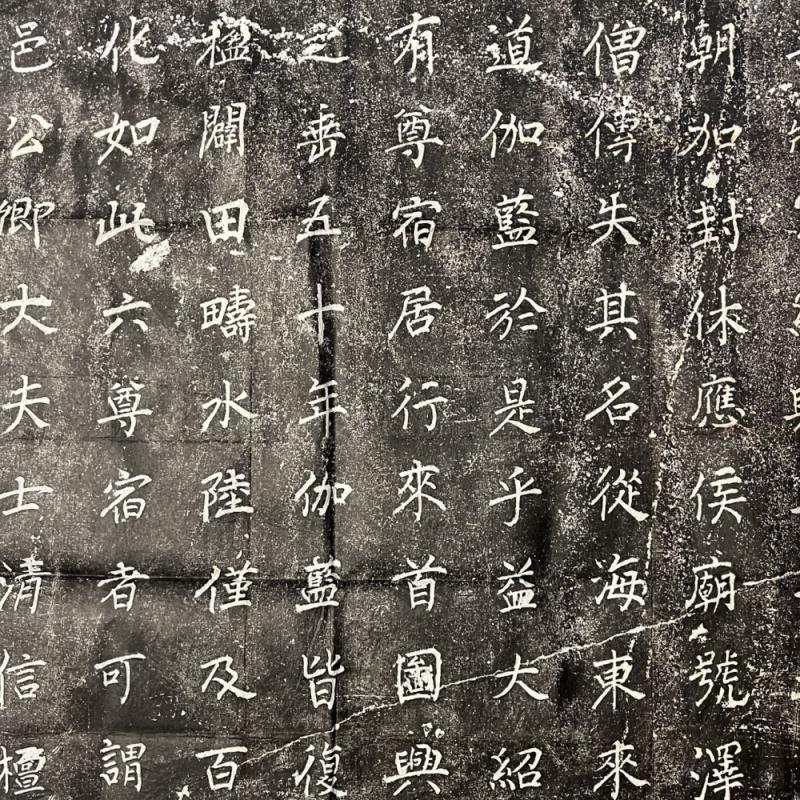 朝加封休應侯廟號澤
僧傳失其名從海東來
道伽藍於是乎益大紹
有尊宿居行來首國興
之垂五十年伽藍皆復
楹闢田疇水陸僅及百
化如此六尊宿者可謂
邑公卿大夫士清信檀